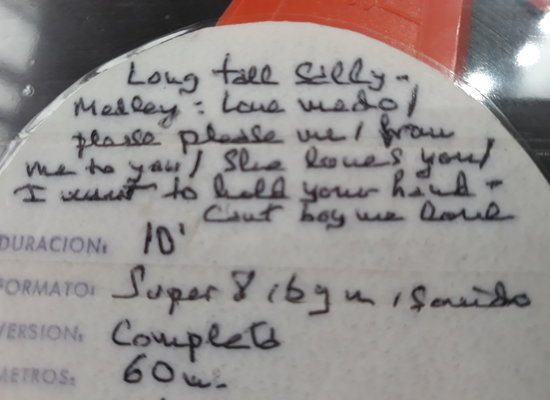 Long tall Silly -
Medley: Love me do /
please please me / from
me to you / She loves you /
I want to hold your hand -
Cant boy me love
DURACION: 10'
FORMATO: Super 8, b y n, sonido
VERSION: Completa
METROS: 60 m.